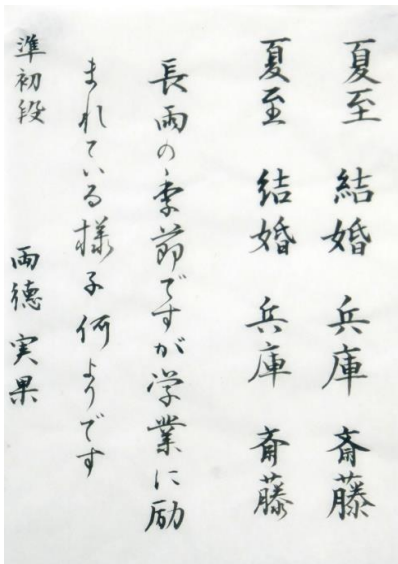 夏至 結婚 兵庫 斎藤
夏至 結婚 兵庫 斎藤
長雨の季節ですが学業に励
まれている様子何よりです
準初段 両徳 実果